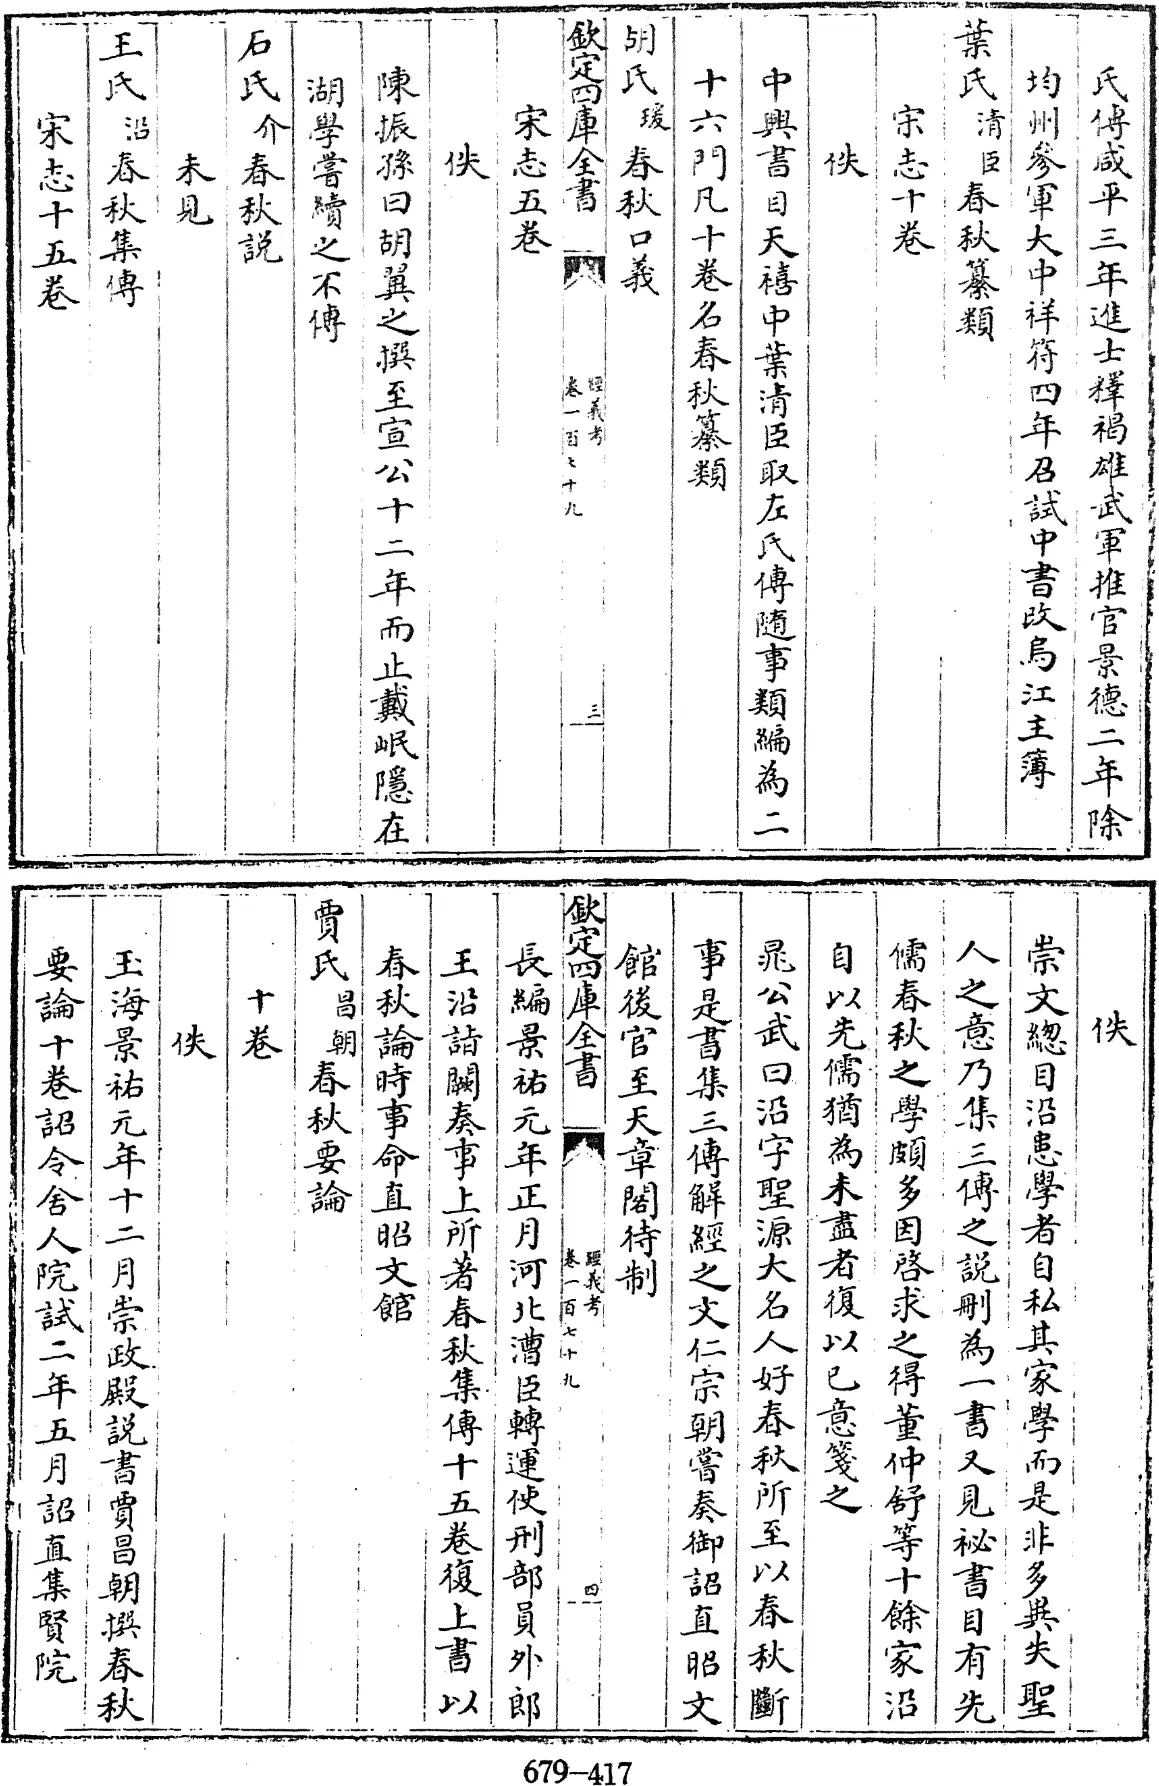 氏傳咸平三年進士釋褐雄武軍推官景德二年除
均州參軍大中祥符四年召試中書改烏江主簿
葉氏清臣春秋纂類
宋志十卷
佚
中興書目天禧中葉清臣取左氏傳隨事類編為二
十六門凡十卷名春秋纂類
胡氏瑗春秋口義
欽定四庫全書
經義考
卷一百七十九
三
宋志五卷
佚
陳振孫曰胡翼之撰至宣公十二年而止戴岷隱在
湖學嘗續之不傳
石氏介春秋説
未見
王氏沿春秋集傳
宋志十五卷
佚
崇文總目沿患學者自私其家學而是非多異失聖
人之意乃集三傳之説刪為一書又見祕書目有先
儒春秋之學頗多因啓求之得董仲舒等十餘家沿
自以先儒猶為未盡者復以已意箋之
晁公武曰沿字聖源大名人好春秋所至以春秋斷
事是書集三傳解經之文仁宗朝嘗奏御詔直昭文
館後官至天章閣待制
欽定四庫全書
經義考
卷一百七十九
四
長編景祐元年正月河北漕臣轉運使刑部員外郎
王沿詣闕奏事上所著春秋集傳十五卷復上書以
春秋論時事命直昭文館
賈氏昌朝春秋要論
十卷
佚
玉海景祐元年十二月崇政殿説書賈昌朝撰春秋
要論十卷詔令舍人院試二年五月詔直集賢院
679-417